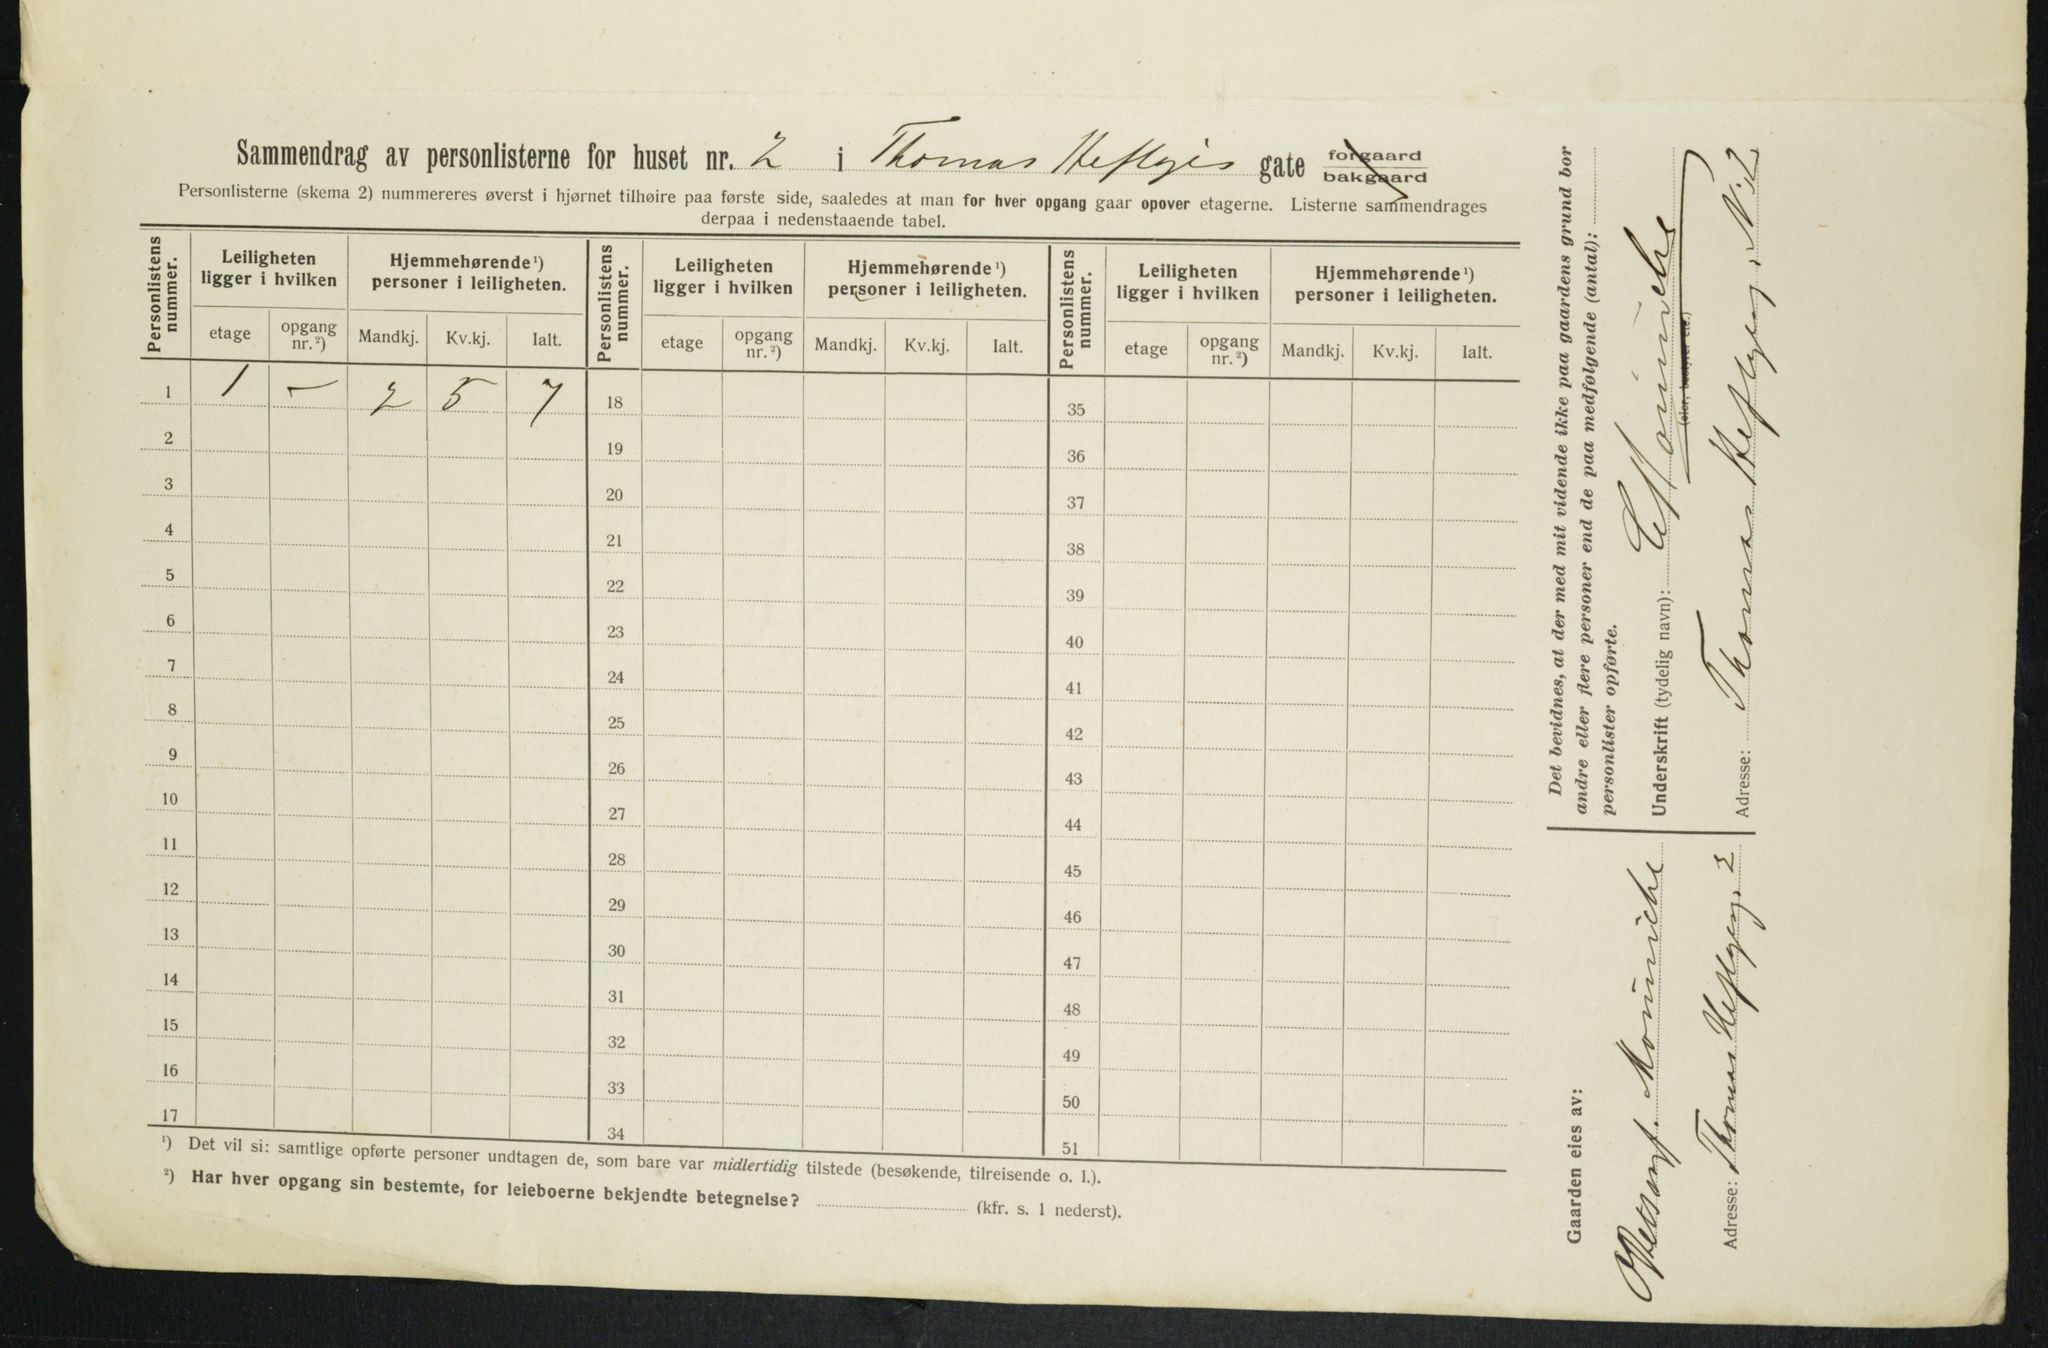 Sammendrag av personlisterne for huset nr. 2 i Thomas Heftyes gate forgaard bakgaard
Personlisterne (skema 2) nummereres øverst i hjørnet tilhøire paa første side, saaledes at man for hver opgang gaar opover etagerne. Listerne sammendrages
derpaa i nedenstaaende tabel.
Personlistens nummer. Leiligheten ligger i hvilken Hjemmehørende ¹) personer i leiligheten. Personlistens nummer. Leiligheten ligger i hvilken Hjemmehørende ¹) personer i leiligheten. Personlistens nummer. Leiligheten ligger i hvilken Hjemmehørende ¹) personer i leiligheten.
etage opgang nr. ²) Mandkj. Kv.kj. Ialt. etage opgang nr. ²) Mandkj. Kv.kj. Ialt. etage opgang nr. ²) Mandkj. Kv.kj. Ialt.
1 1 – 2 5 7 18 35
2 19 36
3 20 37
4 21 38
5 22 39
6 23 40
7 24 41
8 25 42
9 26 43
10 27 44
11 28 45
12 29 46
13 30 47
14 31 48
15 32 49
16 33 50
17 34 51
¹) Det vil si: samtlige opførte personer undtagen de, som bare var midlertidig tilstede (besøkende, tilreisende o. l.).
²) Har hver opgang sin bestemte, for leieboerne bekjendte betegnelse? (kfr. s. 1 nederst).
Gaarden eies av:
Mouniche
Adresse: Thomas Heftyeg. 2
Det bevidnes, at der med mit vidende ikke paa gaardens grund bor
andre eller flere personer end de paa medfølgende (antal):
personlister opførte.
Underskrift (tydelig navn):
(eier, bestyrer etc.)
Adresse: Thomas Heftyeg. N. 2